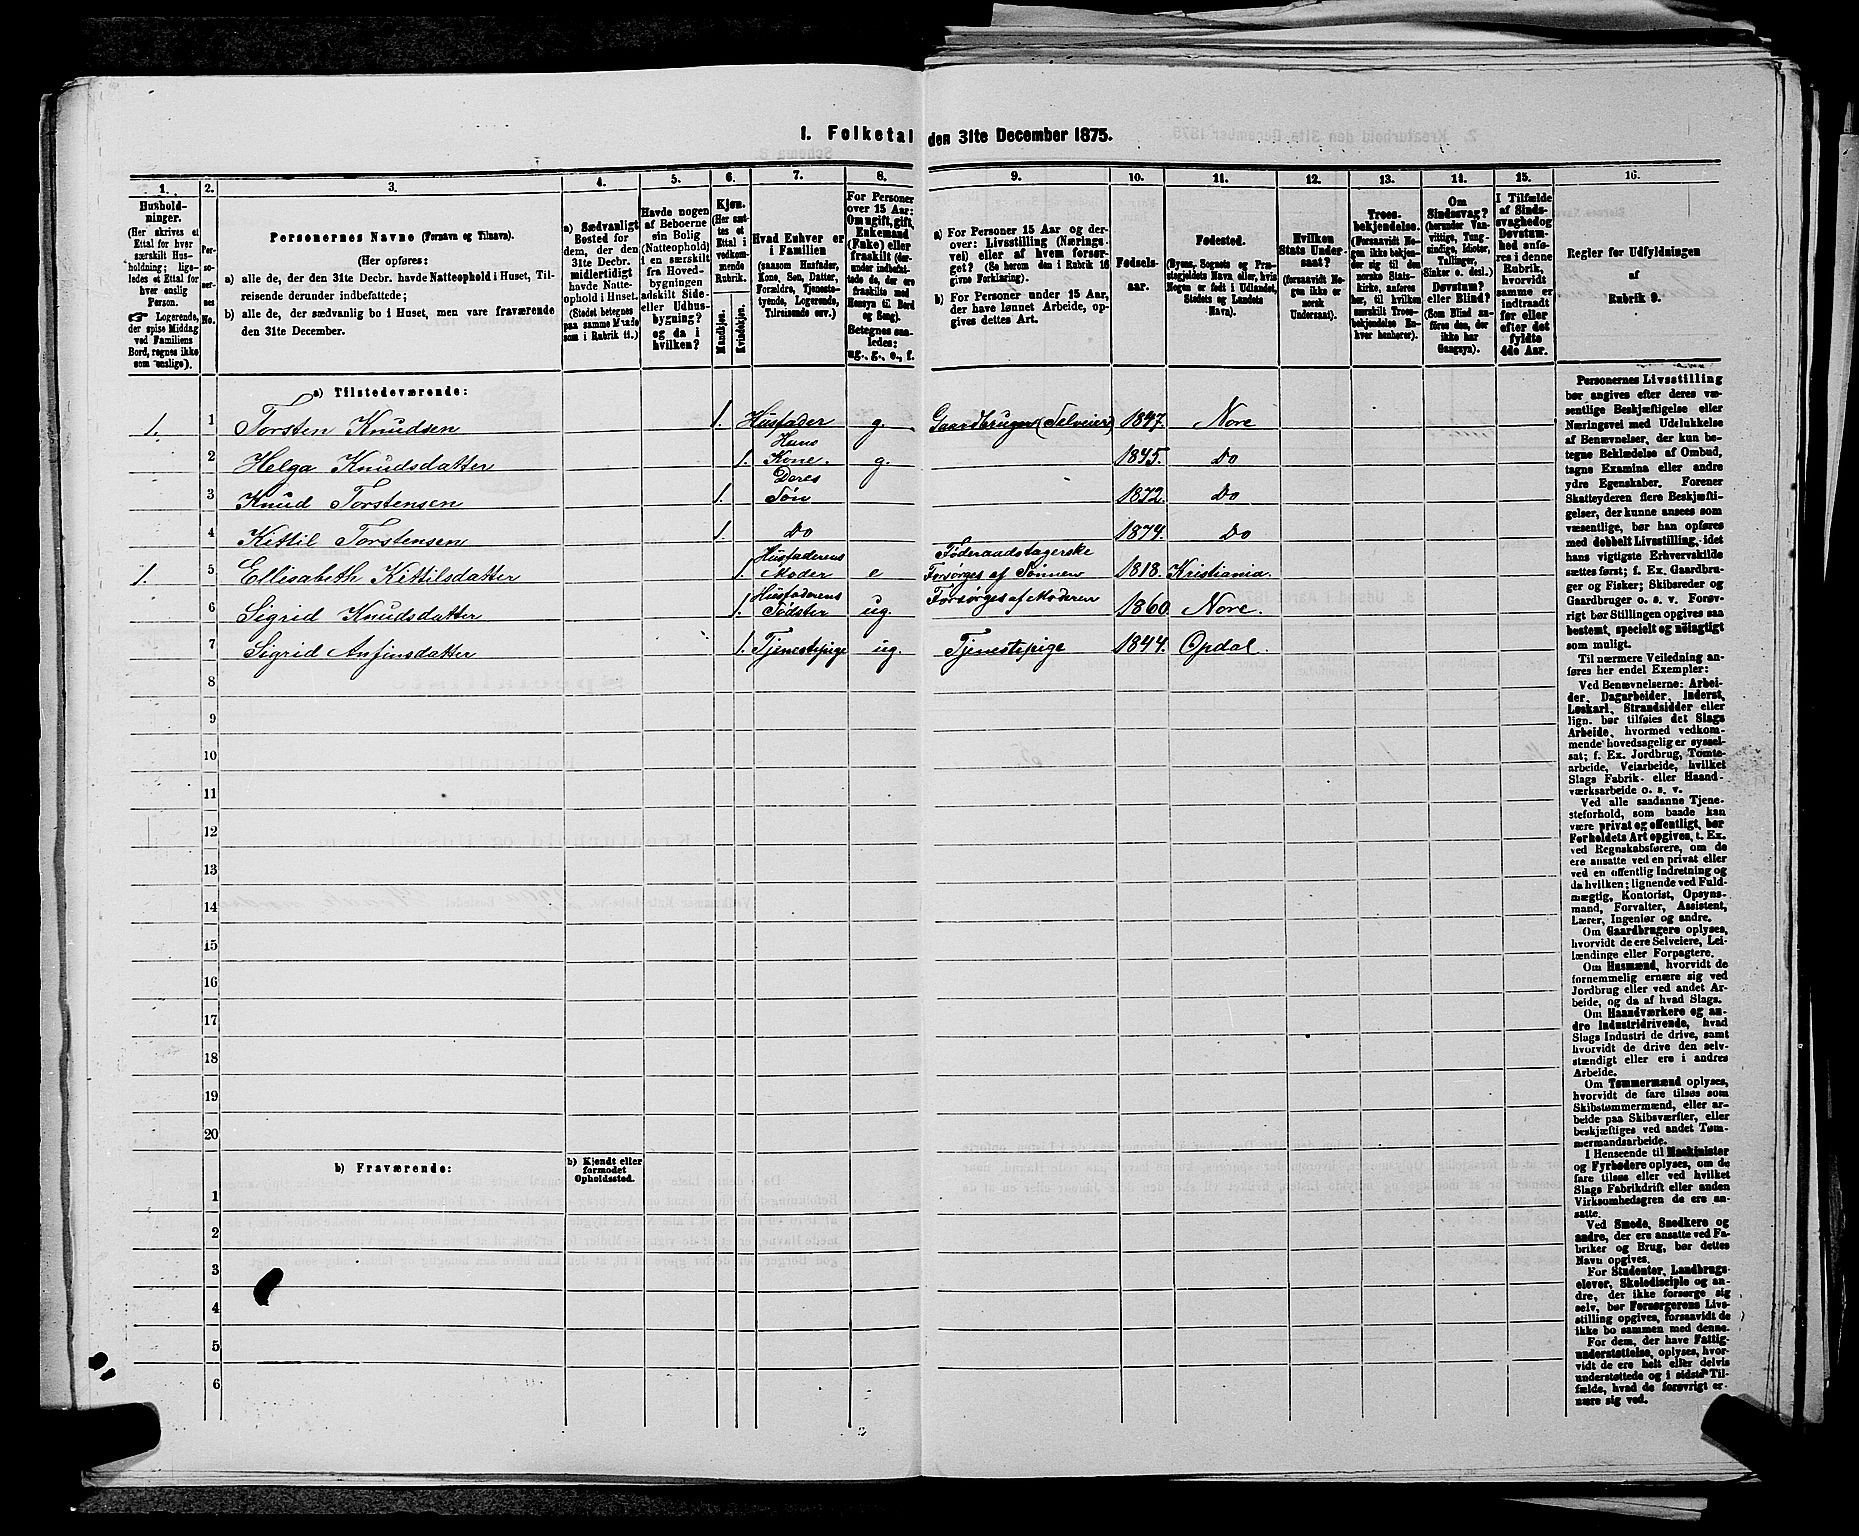 1. Folketal den 31te December 1875.
1. 2. 3. 4. 5. 6. 7. 8. 9. 10. 11. 12. 13. 14. 15. 16.
Hushold-
ninger.
(Her skrives et
Ettal for hver
særskilt Hus-
holdning; lige-
ledes et Ettal for
hver enslig
Person.
☞ Logerende,
der spise Middag
ved Familiens
Bord, regnes ikke
som enslige).
Per-
so-
ner-
nes
No.
Personernes Navne (Fornavn og Tilnavn).
(Her opføres:
a) alle de, der den 31te Decbr. havde Natteophold i Huset, Til-
reisende derunder indbefattede;
b) alle de, der sædvanlig bo i Huset, men vare fraværende
den 31te December.
a) Sædvanligt
Bosted for
dem, der den
31te Decbr.
midlertidigt
havde Natte-
ophold i Huset.
(Stedet betegnes
paa samme Maade
som i Rubrik 11.)
Havde nogen
af Beboerne
sin Bolig
(Natteophold)
i en særskilt
fra Hoved-
bygningen
adskilt Side-
eller Udhus-
bygning?
og da i
hvilken?
Kjøn.
(Her sæt-
tes et
Ettal i
vedkom-
mende
Rubrik.
Mandkjøn.
Kvindekjøn.
Hvad Enhver er
i Familien
(saasom Husfader,
Kone, Søn, Datter,
Forældre, Tjeneste-
tyende, Logerende,
Tilreisende osv.)
For Personer
over 15 Aar:
Om ugift, gift,
Enkemand
(Enke) eller
fraskilt (der-
under indbefat-
tede de, der ere
fraskilte med
Hensyn til Bord
og Seng).
Betegnes saa-
ledes:
ug., g., e., f.
a) For Personer 15 Aar og der-
over: Livsstilling (Nærings-
vei) eller af hvem forsør-
get? (Se herom den i Rubrik 16
givne Forklaring).
b) For Personer under 15 Aar,
der have lønnet Arbeide, op-
gives dettes Art.
Fødsels-
aar.
Fødested.
(Byens, Sognets og Præ-
stegjeldets Navn eller, hvis
Nogen er født i Udlandet,
Stedets og Landets
Navn).
Hvilken
Stats Under-
saat?
(forsaavidt No-
gen ikke er
norsk
Undersaat).
Troes-
bekjendelse.
(Forsaavidt No-
gen ikke bekjen-
der sig til den
norske Stats-
kirke, anføres
her, til hvilken
særskilt Troes-
bekjendelse En-
hver henhører).
Om
Sindssvag?
(herunder Van-
vittige, Tung-
sindige, Idioter,
Tullinger,
Sinker o. desl.)
Døvstum?
eller Blind?
(Som Blind an-
føres den, der
ikke har
Gangsyn).
I Tilfælde
af Sinds-
svaghed og
Døvstum-
hed anfø-
res i denne
Rubrik,
hvorvidt
samme er
indtraadt
før eller
efter det
fyldte
4de Aar.
Regler for Udfyldningen
af
Rubrik 9.
a) Tilstedeværende:
1. 1 Torsten Knudsen 1. Husfader g. Gaardbruger (Selveier) 1847. Nore
2 Helga Knudsdatter 1. Hans Kone. g. 1845. Do
3 Knud Torstensen 1. Deres Søn 1872. Do
4 Kittil Torstensen 1 Do 1874. Do
1. 5 Ellisabeth Kittilsdatter 1. Husfaderens Moder e Føderaadstagerske Forsørges af Sønnen 1818. Kristiania.
6 Sigrid Knudsdatter 1. Husfaderens Søster ug. Forsørges af Moderen 1860. Nore.
7 Sigrid Anfinsdatter 1. Tjenestepige ug. Tjenestepige 1844. Opdal.
8
9
10
11
12
13
14
15
16
17
18
19
20
b) Fraværende:
b) Kjendt eller
formodet
Opholdssted.
1
2
3
4
5
6
Personernes Livsstilling
bør angives efter deres væ-
sentlige Beskjæftigelse eller
Næringsvei med Udelukkelse
af Benævnelser, der kun be-
tegne Beklædelse af Ombud,
tagne Examina eller andre
ydre Egenskaber. Forener
Skatteyderen flere Beskjæfti-
gelser, der kunne ansees som
væsentlige, bør han opføres
med dobbelt Livsstilling, idet
hans vigtigste Erhvervskilde
sættes først; f. Ex. Gaardbru-
ger og Fisker; Skibsreder og
Gaardbruger o. s. v. Forøv-
rigt bør Stillingen opgives saa
bestemt, specielt og nøiagtigt
som muligt.
Til nærmere Veiledning an-
føres her endel Exempler:
Ved Benævnelserne: Arbei-
der, Dagarbeider, Inderst,
Løskarl, Strandsidder eller
lign. bør tilføies det Slags
Arbeide, hvormed vedkom-
mende hovedsagelig er syssel-
sat; f. Ex. Jordbrug, Tomte-
arbeide, Veiarbeide, hvilket
Slags Fabrik- eller Haand-
værksarbeide o. s. v.
Ved alle saadanne Tjene-
steforhold, som baade kan
være privat og offentligt, bør
Forholdets Art opgives, t. Ex.
ved Regnskabsførere, om de
ere ansatte ved en privat eller
ved en offentlig Indretning og
da hvilken; lignende ved Fuld-
mægtig, Kontorist, Opsyns-
mand, Forvalter, Assistent,
Lærer, Ingeniør og andre.
Om Gaardbrugere oplyses,
hvorvidt de ere Selveiere, Lei-
lændinge eller Forpagtere.
Om Husmænd, hvorvidt de
fornemmelig ernære sig ved
Jordbrug eller ved andet Ar-
beide, og da af hvad Slags.
Om Haandværkere og an-
dre Industridrivende, hvad
Slags Industri de drive, samt
hvorvidt de drive den selv-
stændigt eller ere i andres
Arbeide.
Om Tømmermænd oplyses,
hvorvidt de fare tilsøs som
Skibstømmermænd, eller ar-
beide paa Skibsværfter, eller
beskjæftiges ved andet Tøm-
mermandsarbeide.
I Henseende til Maskinister
og Fyrbødere oplyses, om de
fare tilsøs eller ved hvilket
Slags Fabrikdrift eller anden
Virksomhedsgren de ere an-
satte.
Ved Smede, Snedkere og
andre, der ere ansatte ved Fa-
briker og Brug, bør dettes
Navn opgives.
For Studenter, Landbrugs-
elever, Skoledisciple og an-
dre, der ikke forsørge sig
selv, bør Forsørgerens Livs-
stilling opgives, forsaavidt de
ikke bo sammen med denne.
For dem, der have Fattig-
understøttelse, oplyses, hvor-
vidt de ere helt eller delvis
understøttede og i sidste Til-
fælde, hvad de forøvrigt er-
nære sig ved.